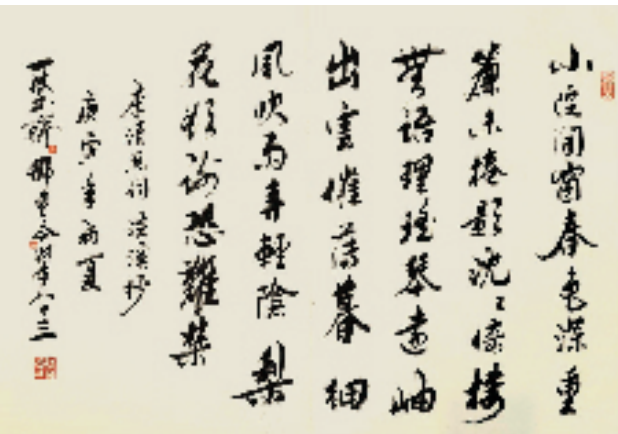 小院閒窗春色深重
簾未捲影沉々倚樓
無語理瑤琴遠岫
出雲催薄暮細
風吹雨弄輕陰梨
花欲謝恐難禁
李清照詞浣溪沙
庚寅年初夏
時年八十三